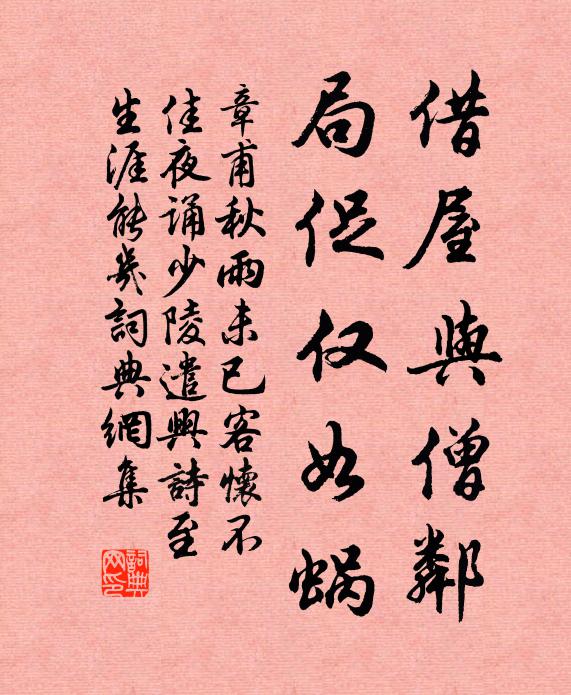 借屋與僧鄰
局促仅如蝸
章甫秋雨未已客懷不
佳夜诵少陵遣興詩至
生涯能幾詞典網集
詞典網印